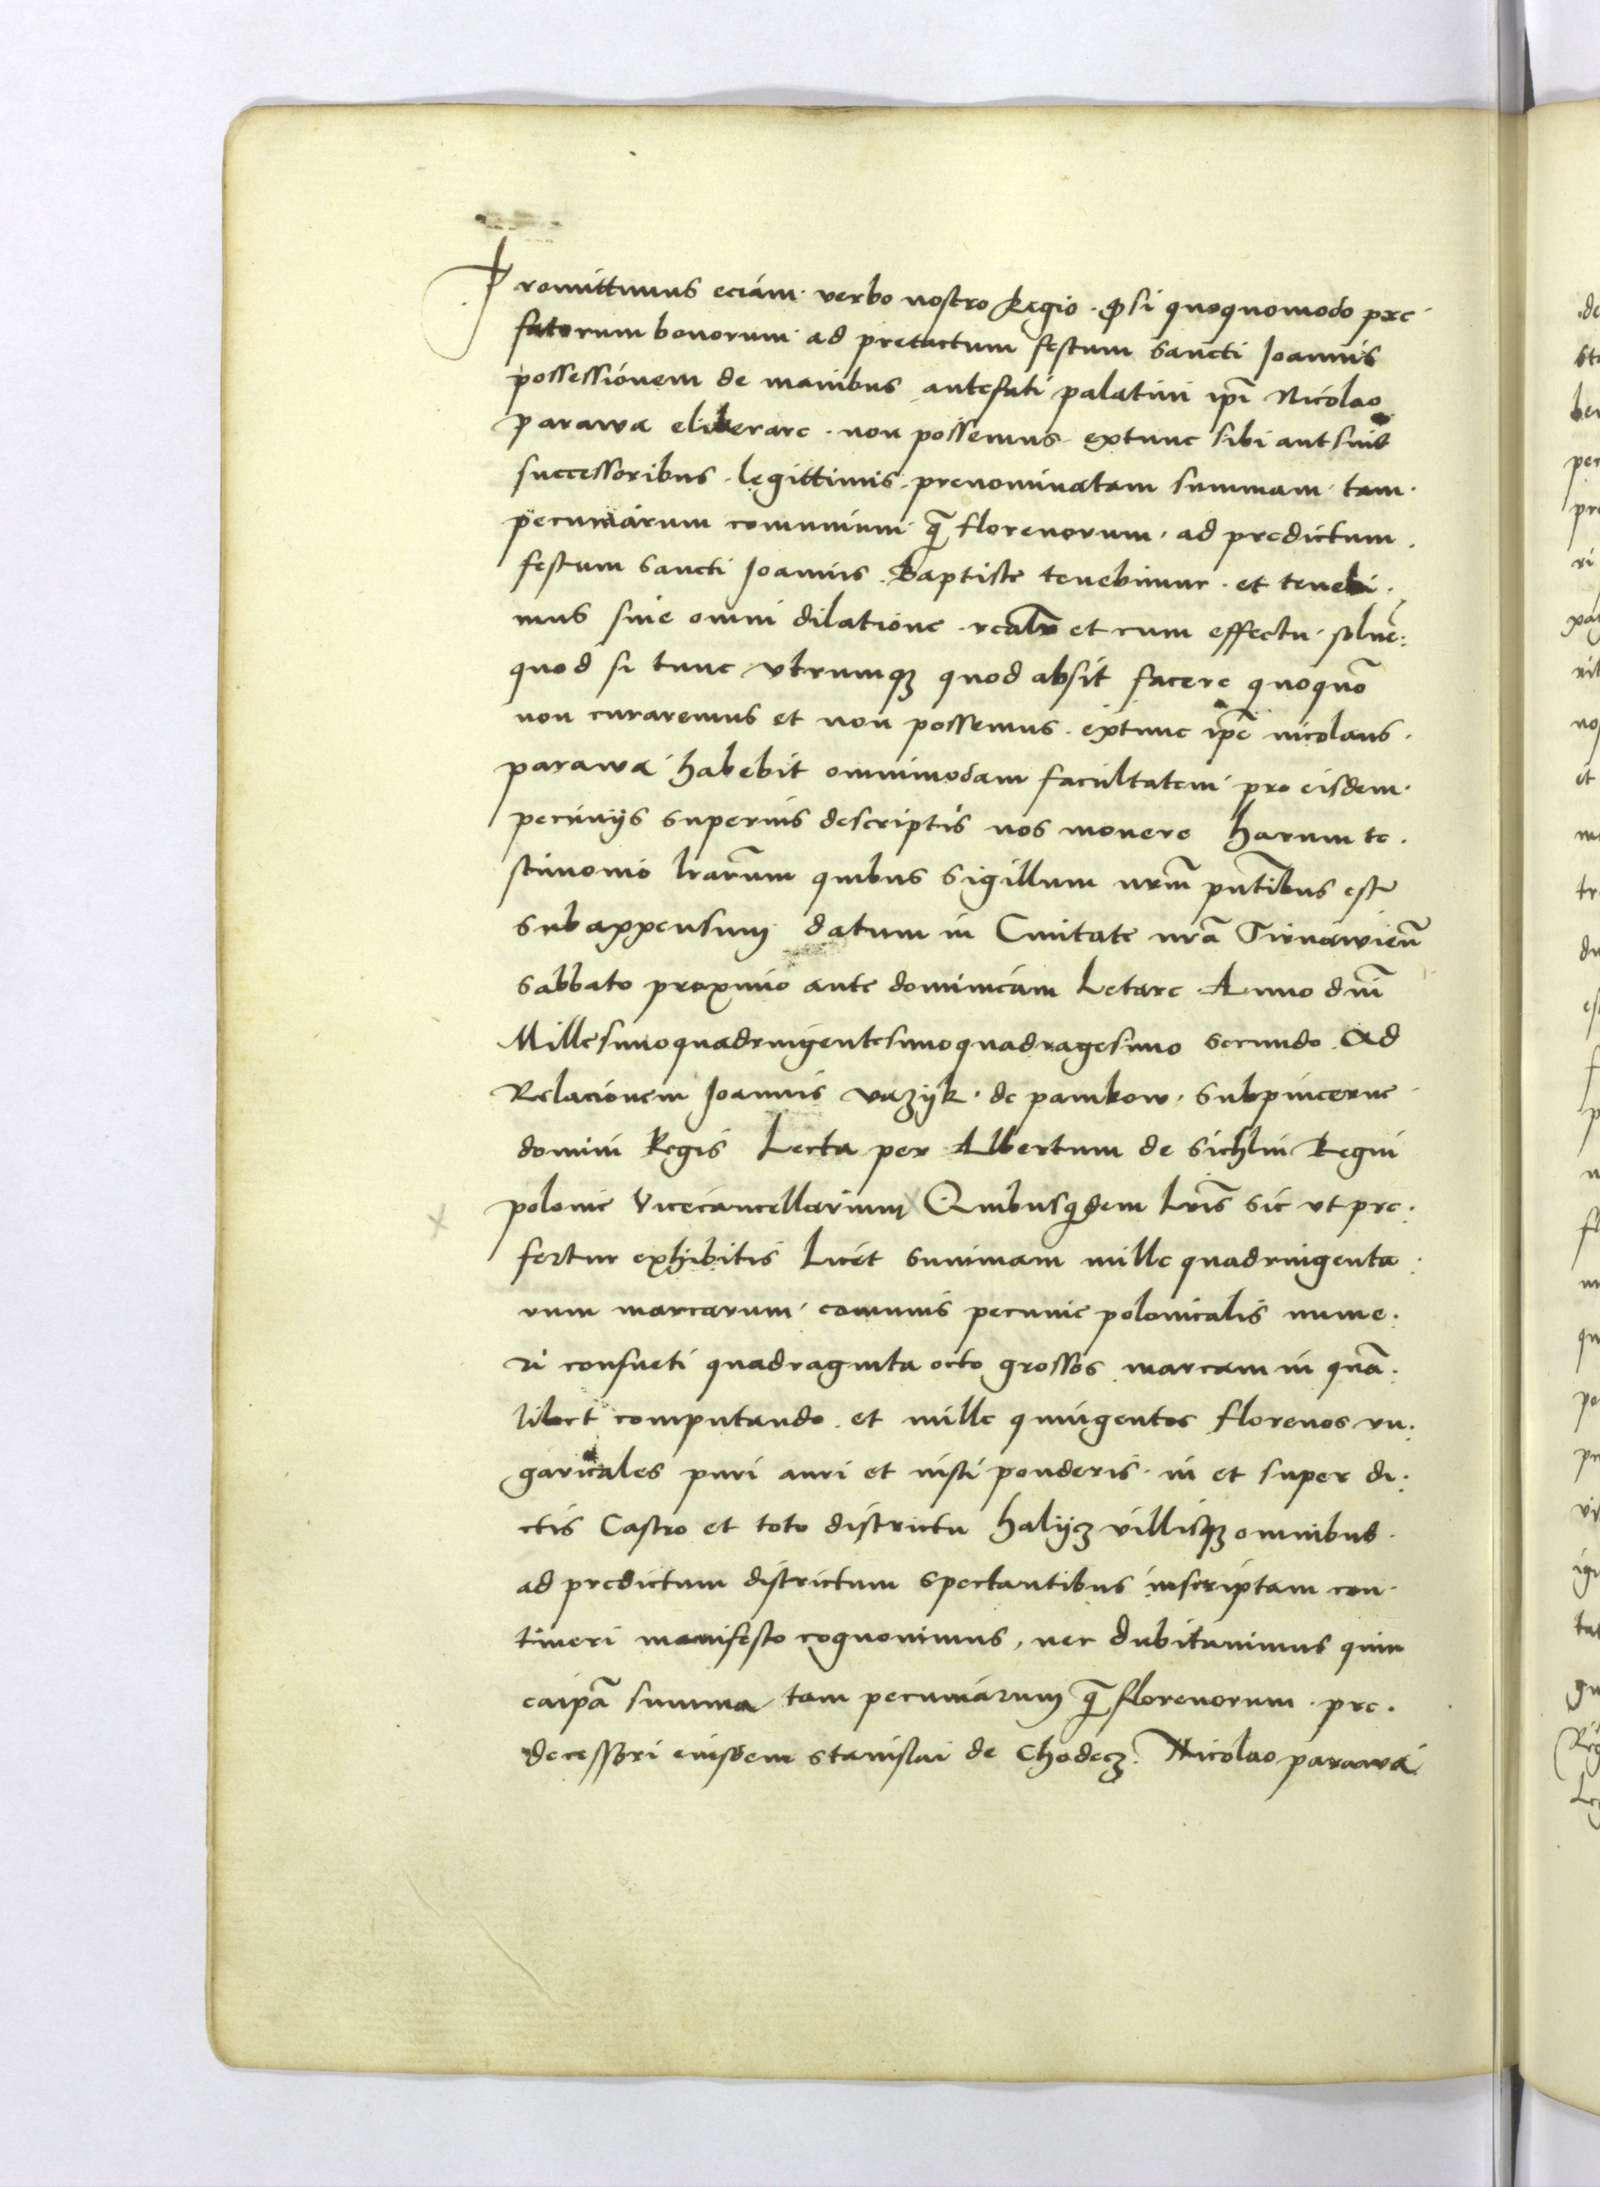 Promittimus eciam verbo nostro Regio · ꝙ si quoquomodo pre
fatorum bonorum ad pretactum festum Sancti Joannis
possessionem de manibus antefati palatini ip̄i Nicolao
parawa eliberare · non possemus · extunc sibi aut suis
successoribus · legittimis · prenominatam summam · tam ·
pecuniarum comunium q̄ florenorum · ad predictum ·
festum Sancti Joannis · Baptiste tenebimur · et tenebi ·
mus sine omni dilatione · realr̄ et cum effectu · soluē :
quod si tunc vtrumqꝫ quod absit facere quoquō
non curaremus et non possemus · extunc ip̄e nicolaus ·
parawa habebit omnimodam facultatem · pro eisdem ·
pecunijs superius descriptis nos monere harum te ·
stimonio lr̄arum quibus Sigillum nr̄m pn̄tibus est
subappensum datum in Ciuitate nr̄a Tirnawien̄
Sabbato proximo ante dominicam Letare Anno dn̄i
Millesimoquadringentesimoquadragesimo secundo Ad
Relacionem Joannis vazyk · de pamkow · Subpincerne
domini Regis Lecta per Albertum de Sichlin Regni
polonie Vicecancellarium Quibusquidem Lr̄is sic vt pre :
fertur exhibitis Licet Summam mille quadringenta :
rum marcarum · comunis pecunie polonicalis nume ·
ri consueti quadraginta octo grossos marcam in quā :
libet computando et mille quingentos florenos vn :
garicales puri auri et iusti ponderis · in et super di :
ctis Castro et toto districtu halijcz villisqꝫ omnibus ·
ad predictum districtum spectantibus inscriptam con ·
tineri manifesto cognouimus, nec dubitauimus quin
eaip̄a summa tam pecuniarum q̄ florenorum · pre ·
decessori eiusdem Stanislai de Chodecz Nicolao parawa